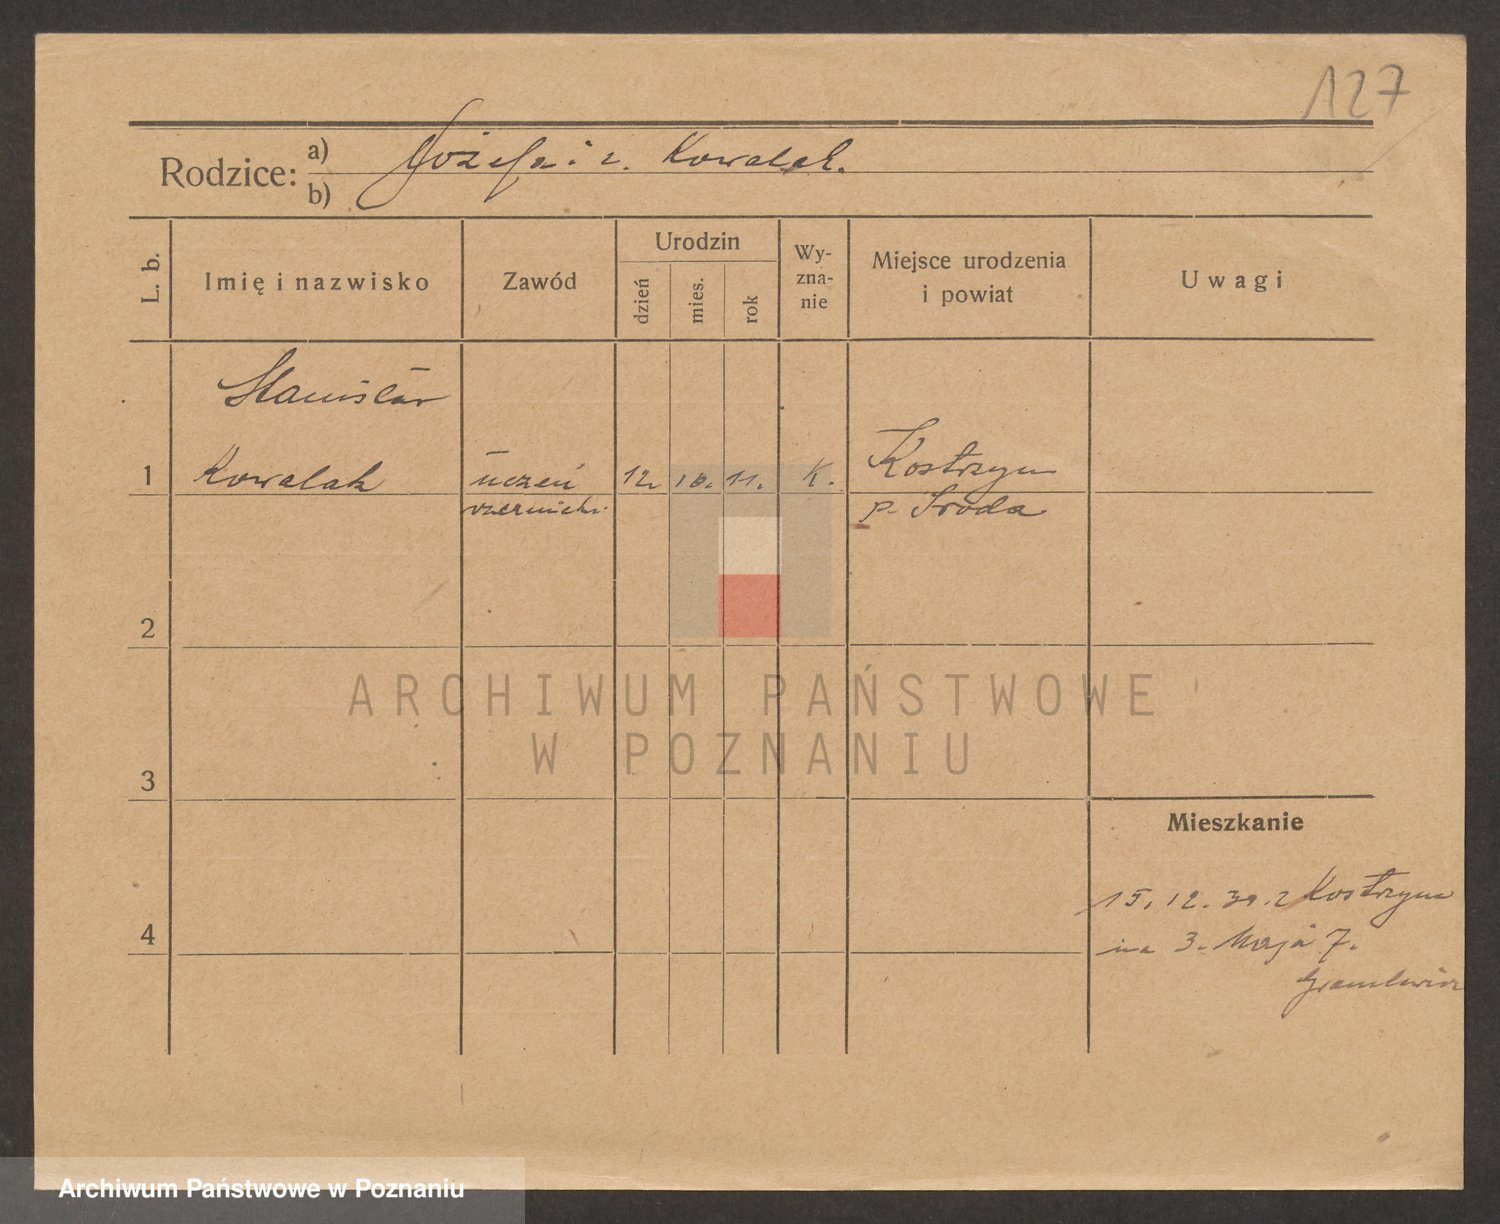 127
Rodzice: a) Józefa i z. Kowalak.
b)
L. b.
Imię i nazwisko
Zawód
Urodzin
dzień
mies.
rok
Wy-
zna-
nie
Miejsce urodzenia
i powiat
Uwagi
Stanisław
1 Kowalak uczeń 12. 10. 11. K. Kostrzyn
p. Środa
2
3
4
Mieszkanie
15. 12. 30. z Kostrzyna
na 3. Maja 7.
ARCHIWUM PAŃSTWOWE
W POZNANIU
Archiwum Państwowe w Poznaniu